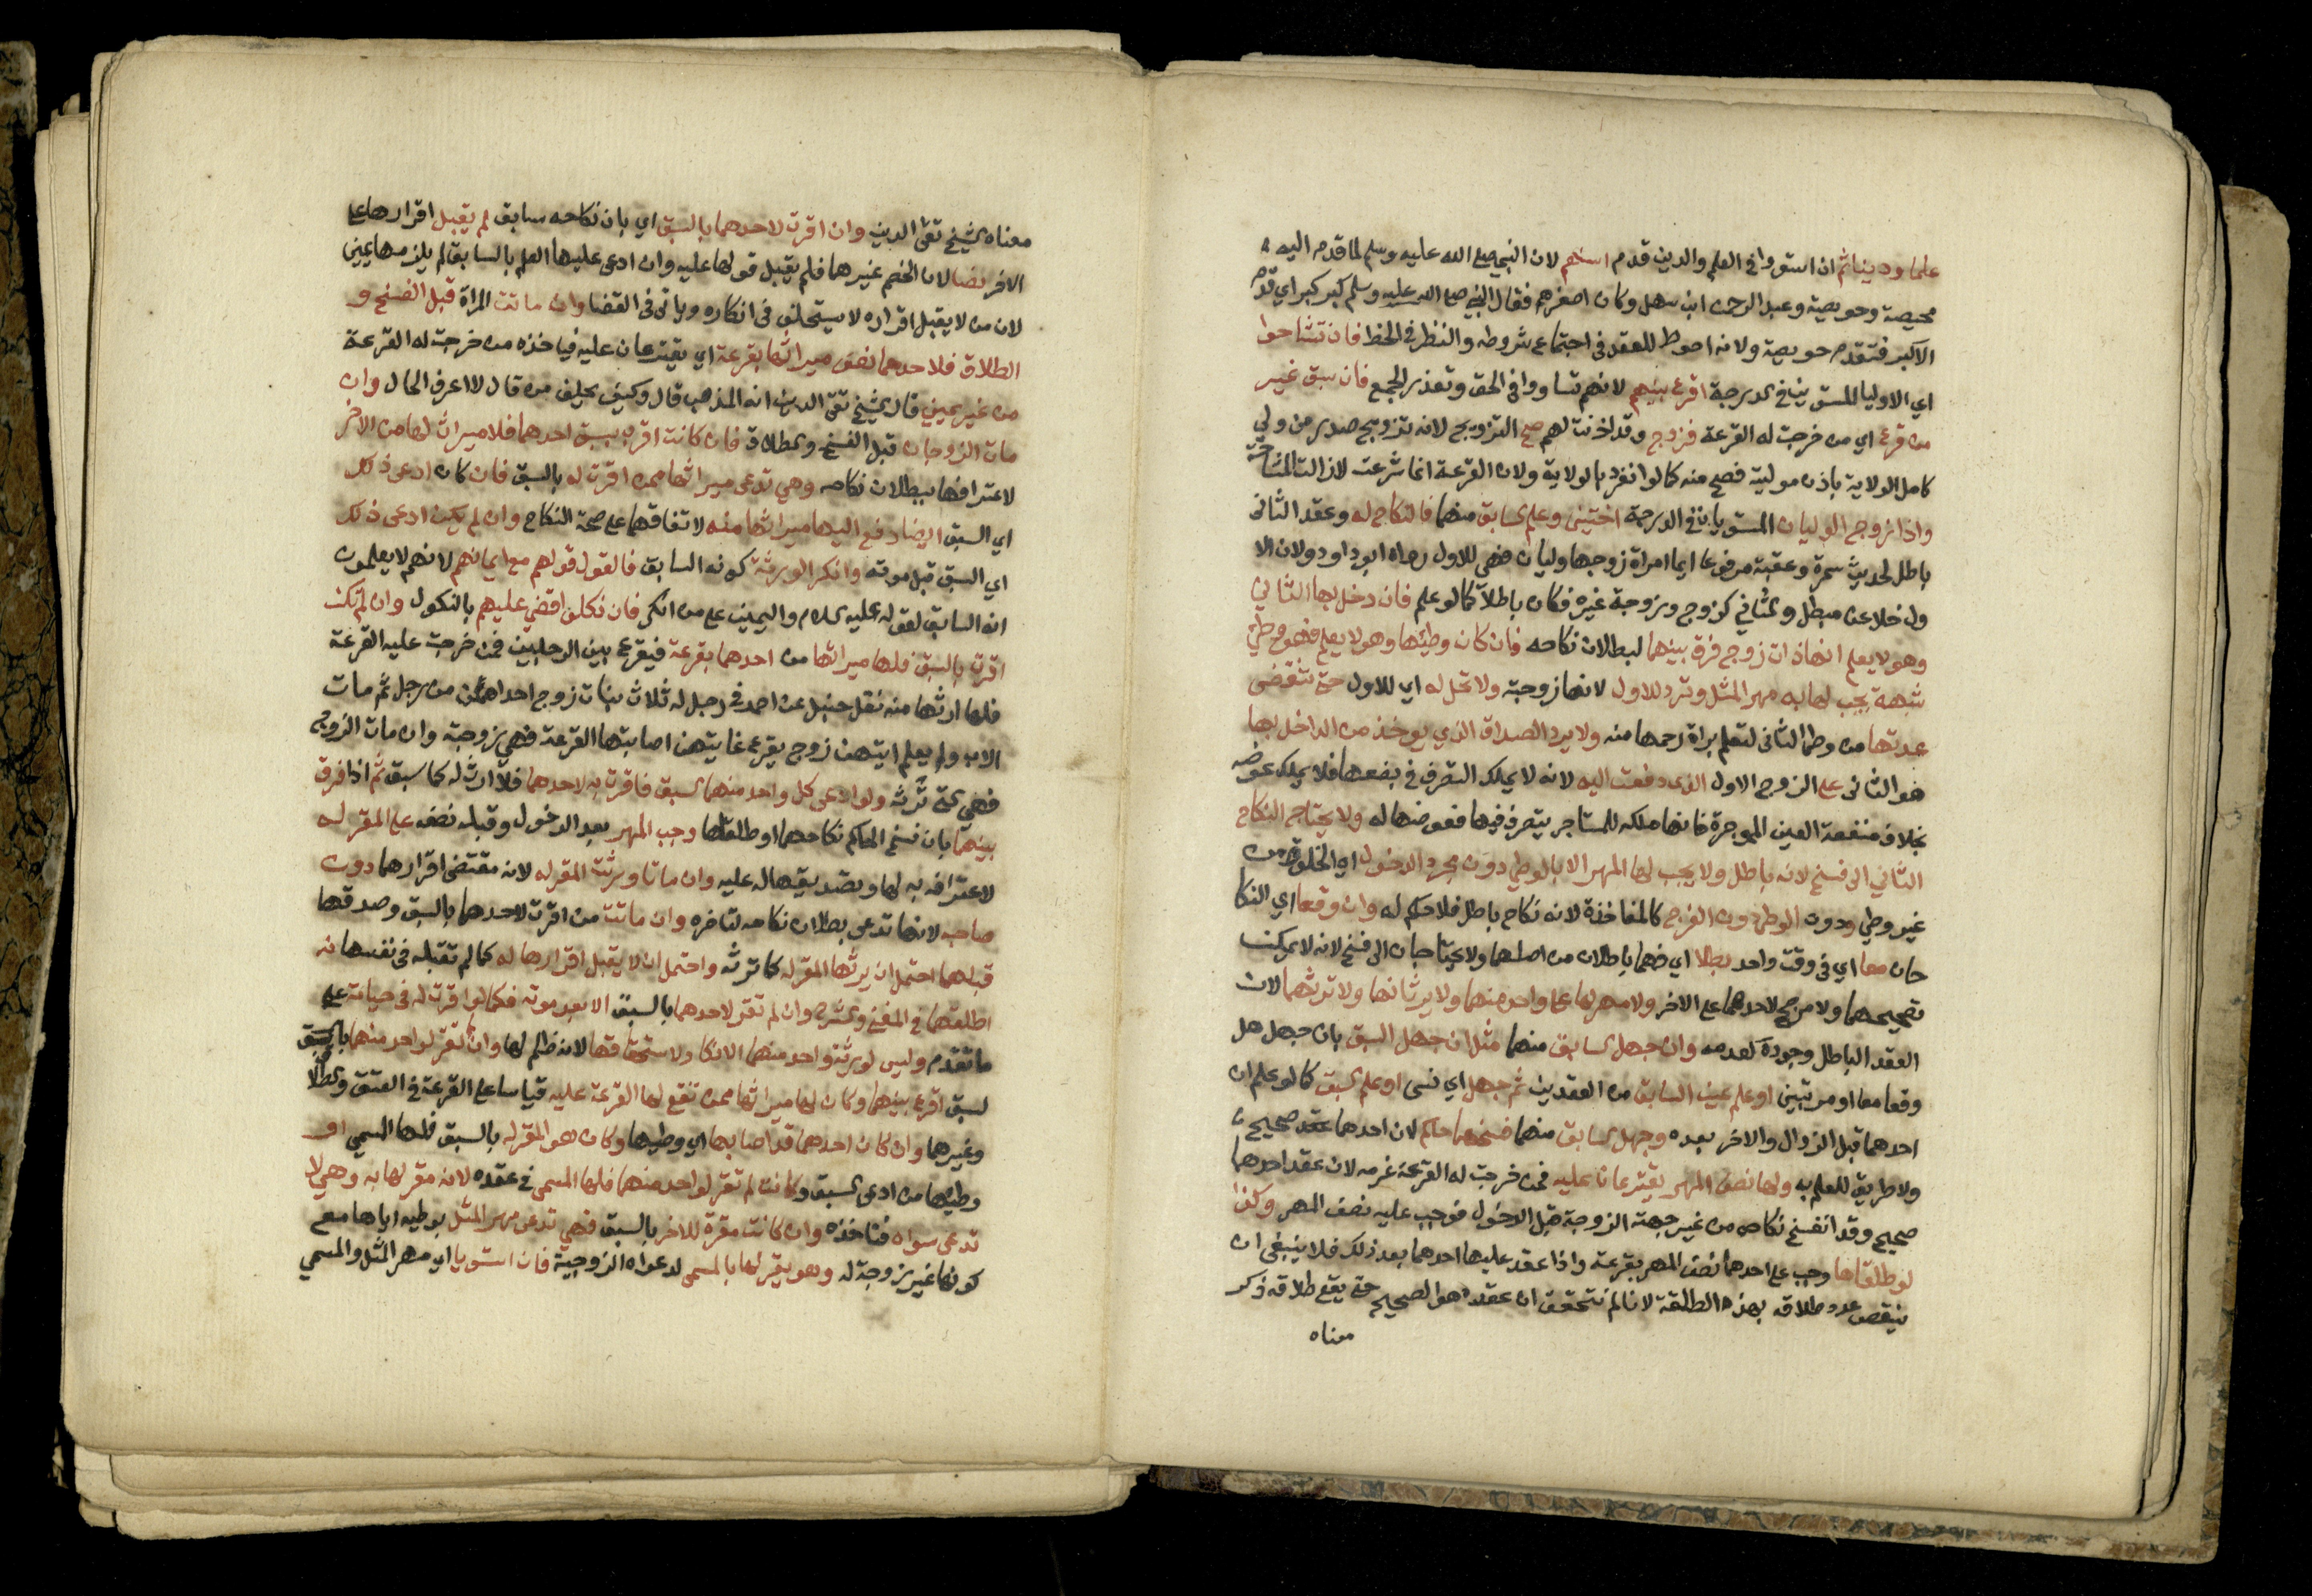 علما ودينا ثم ان استووا في العلم والدين قدم اسنهم لان النبي صلى الله عليه وسلم لما قدم اليه
محيصة وحويصة وعبد الرحمن ابن سهل وكان اصغرهم فقال النبي صلى الله عليه وسلم كبر كبر اي قدم
الاكبر فتقدم حويصة ولانه احوط للعقد في اجتماع شروطه والنظر في الحظ فان تشاحوا
اي الاوليا المستوين في الدرجة اقرع بينهم لانهم تساووا في الحق وتعذر الجمع فان سبق غير
من قرع اي من خرجت له القرعة فزوج وقد اذنت لهم صح التزويج لانه تزويج صدر من ولي
كامل الولاية باذن موليته فصح منه كما لوا نفرد بالولاية ولان القرعة انما شرعت لازالت المشاحة
واذا زوج الوليان المستويان في الدرجة اثنين وعلم السابق منهما فالنكاح له وعقد الثاني
باطل لحديث سمرة وعقبة مرفوعا ايما امراة زوجها وليان فهي للاول رواه ابو داود ولان الا
ول خلا عن مبطل والثاني كزوج وزوجة غيره فكان باطلا كما لو علم فان دخل بها الثاني
وهو لا يعلم انها ذات زوج فرق بينهما لبطلان نكاحه فان كان وطيها وهو لا يعلم فهو وطي
شبهة يجب لها به مهر المثل وترد للاول لانها زوجته ولا تحل له اي للاول حتى تنقضي
عدتها من وطئ الثاني لتعلم براة رحمها منه ولا يرد الصداق الذي يوخذ من الداخل بها
هو الثاني على الزوج الاول الذي دفعت اليه لانه لا يملك التصرف في بضعها فلا يملك عوضه
بخلاف منفعة العين الموجرة فانها ملكه للمستاجر يتصرف فيها فعوضها له ولا يحتاج النكاح
الثاني الى فسخ لانه باطل ولا يجب لها المهر الا بالوطي دون مجرد الدخول اي الخلوة من
غير وطي ودون الوطي دون الفرج كالمفاخذة لانه نكاح باطل فلا حكم له وان وقعا اي النكا
حان معا اي في وقت واحد بطلا اي فهما باطلان من اصلهما ولا يحتاجان الى فسخ لانه لا يمكن
تصحيحهما ولا مرجح لاحدهما على الاخر ولا مهر لها على واحد منهما ولا يرثانها ولا ترثهما لان
العقد الباطل وجوده كعدمه وان جهل السابق منهما مثل ان جهل السبق بان جهل هل
وقعا معا او مرتبين او علم عين السابق من العقدين ثم جهل اي نسي او علم السبق كما لو علم ان
احدهما قبل الزوال والاخر بعده وجهل السابق منهما فسخهما حاكم لان احدهما عقد صحيح
ولا طريق للعلم به ولها نصف المهر يقترعان عليه فمن خرجت له القرعة غرمه لان عقد احدهما
صحيح وقد انفسخ نكاحه من غير جهة الزوجة قبل الدخول فوجب عليه نصف المهر وكذا
لو طلقاها وجب على احدهما نصف المهر بقرعة واذا عقد عليها احدهما بعد ذلك فلا ينبغي ان
ينقص عدد طلاقه بهذه الطلقة لانا لم نتحقق ان عقده هو الصحيح حتى يقع طلاقه ذكر
معناه
معناه الشيخ تقي الدين وان اقرت لاحدهما بالسبق اي بان نكاحه سابق لم يقبل اقرارها على
الاخر نصا لان الخصم غيرهما فلم يقبل قولها عليه وان ادعى عليها العلم بالسابق لم يلزمها يمين
لان من لا يقبل اقراره لا يستحلف في انكاره وياتي في القضا وان ماتت المراة قبل الفسخ و
الطلاق فلاحدهما نصف ميراثها بقرعة اي يقترعان عليه فياخذه من خرجت له القرعة
من غير يمين قال الشيخ تقي الدين انه المذهب قال وكيف يحلف من قال لا اعرف الحال وان
مات الزوجان قبل الفسخ والطلاق فان كانت اقرت بسبق احدهما فلا ميراث لها من الاخر
لاعترافها ببطلان نكاحه وهي تدعي ميراثها ممن اقرت له بالسبق فان كان ادعى ذلك
اي السبق ايضا دفع اليها ميراثها منه لاتفاقهما على صحة النكاح وان لم يكن ادعى ذلك
اي السبق قبل موته وانكر الورثة كونه السابق فالقول قولهم مع ايمانهم لانهم لا يعلمون
انه السابق لقوله عليه السلام واليمين على من انكر فان نكلوا قضي عليهم بالنكول وان لم تكن
اقرت بالسبق فلها ميراثها من احدهما بقرعة فيقرع بين الرجلين فمن خرجت عليه القرعة
فلها ارثها منه نقل حنبل عن احمد في رجل له ثلاث بنات زوج احداهن من رجل ثم مات
الاب ولم يعلم ايتهن زوج يقرع فايتهن اصابتها القرعة فهي زوجته وان مات الزوج
فهي التي ترثه ولو ادعى كل واحد منهما السبق فاقرت به لاحدهما فلا ارث له كما سبق ثم اذا فرق
بينهما بان فسخ الحاكم نكاحهما او طلقاها وجب المهر بعد الدخول وقبله نصفه على المقر له
لاعترافه به لها وتصديقها له عليه وان ماتا ورثت المقر له لانه مقتضى اقرارها دون
صاحبه لانها تدعي بطلان نكاحه لتاخره وان ماتت من اقرت لاحدهما بالسبق وصدقها
قبلهما احتمل ان يرثها المقر له كما ترثه واحتمل ان لا يقبل اقرارها له كما لم تقبله في نفسها
اطلقهما في المغني والشرح وان لم تقر لاحدهما بالسبق الا بعد موته فكما لو اقرت له في حياته على
ما تقدم وليس لورثة واحد منهما الانكار لاستحقاقها لانه ظالم لها وان لم تقر لواحد منهما بالسبق
لسبق اقرع بينهما وكان لها ميراثها ممن تقع لها القرعة عليه قياسا على القرعة في العتق والطلاق
وغيرهما وان كان احدهما قد اصابها اي وطيها وكان هو المقر له بالسبق فلها المسمى او
وطيها من ادعى السبق وكانت لم تقر لواحد منهما فلها المسمى في عقده لانه مقر لها به وهي لا
تدعي سواه فتاخذه وان كانت مقرة للاخر بالسبق فهي تدعي مهر المثل بوطيه اياها مع
كونها غير زوجة له وهو يقر لها بالمسمى لدعواه الزوجية فان استويا اي مهر المثل والمسمى